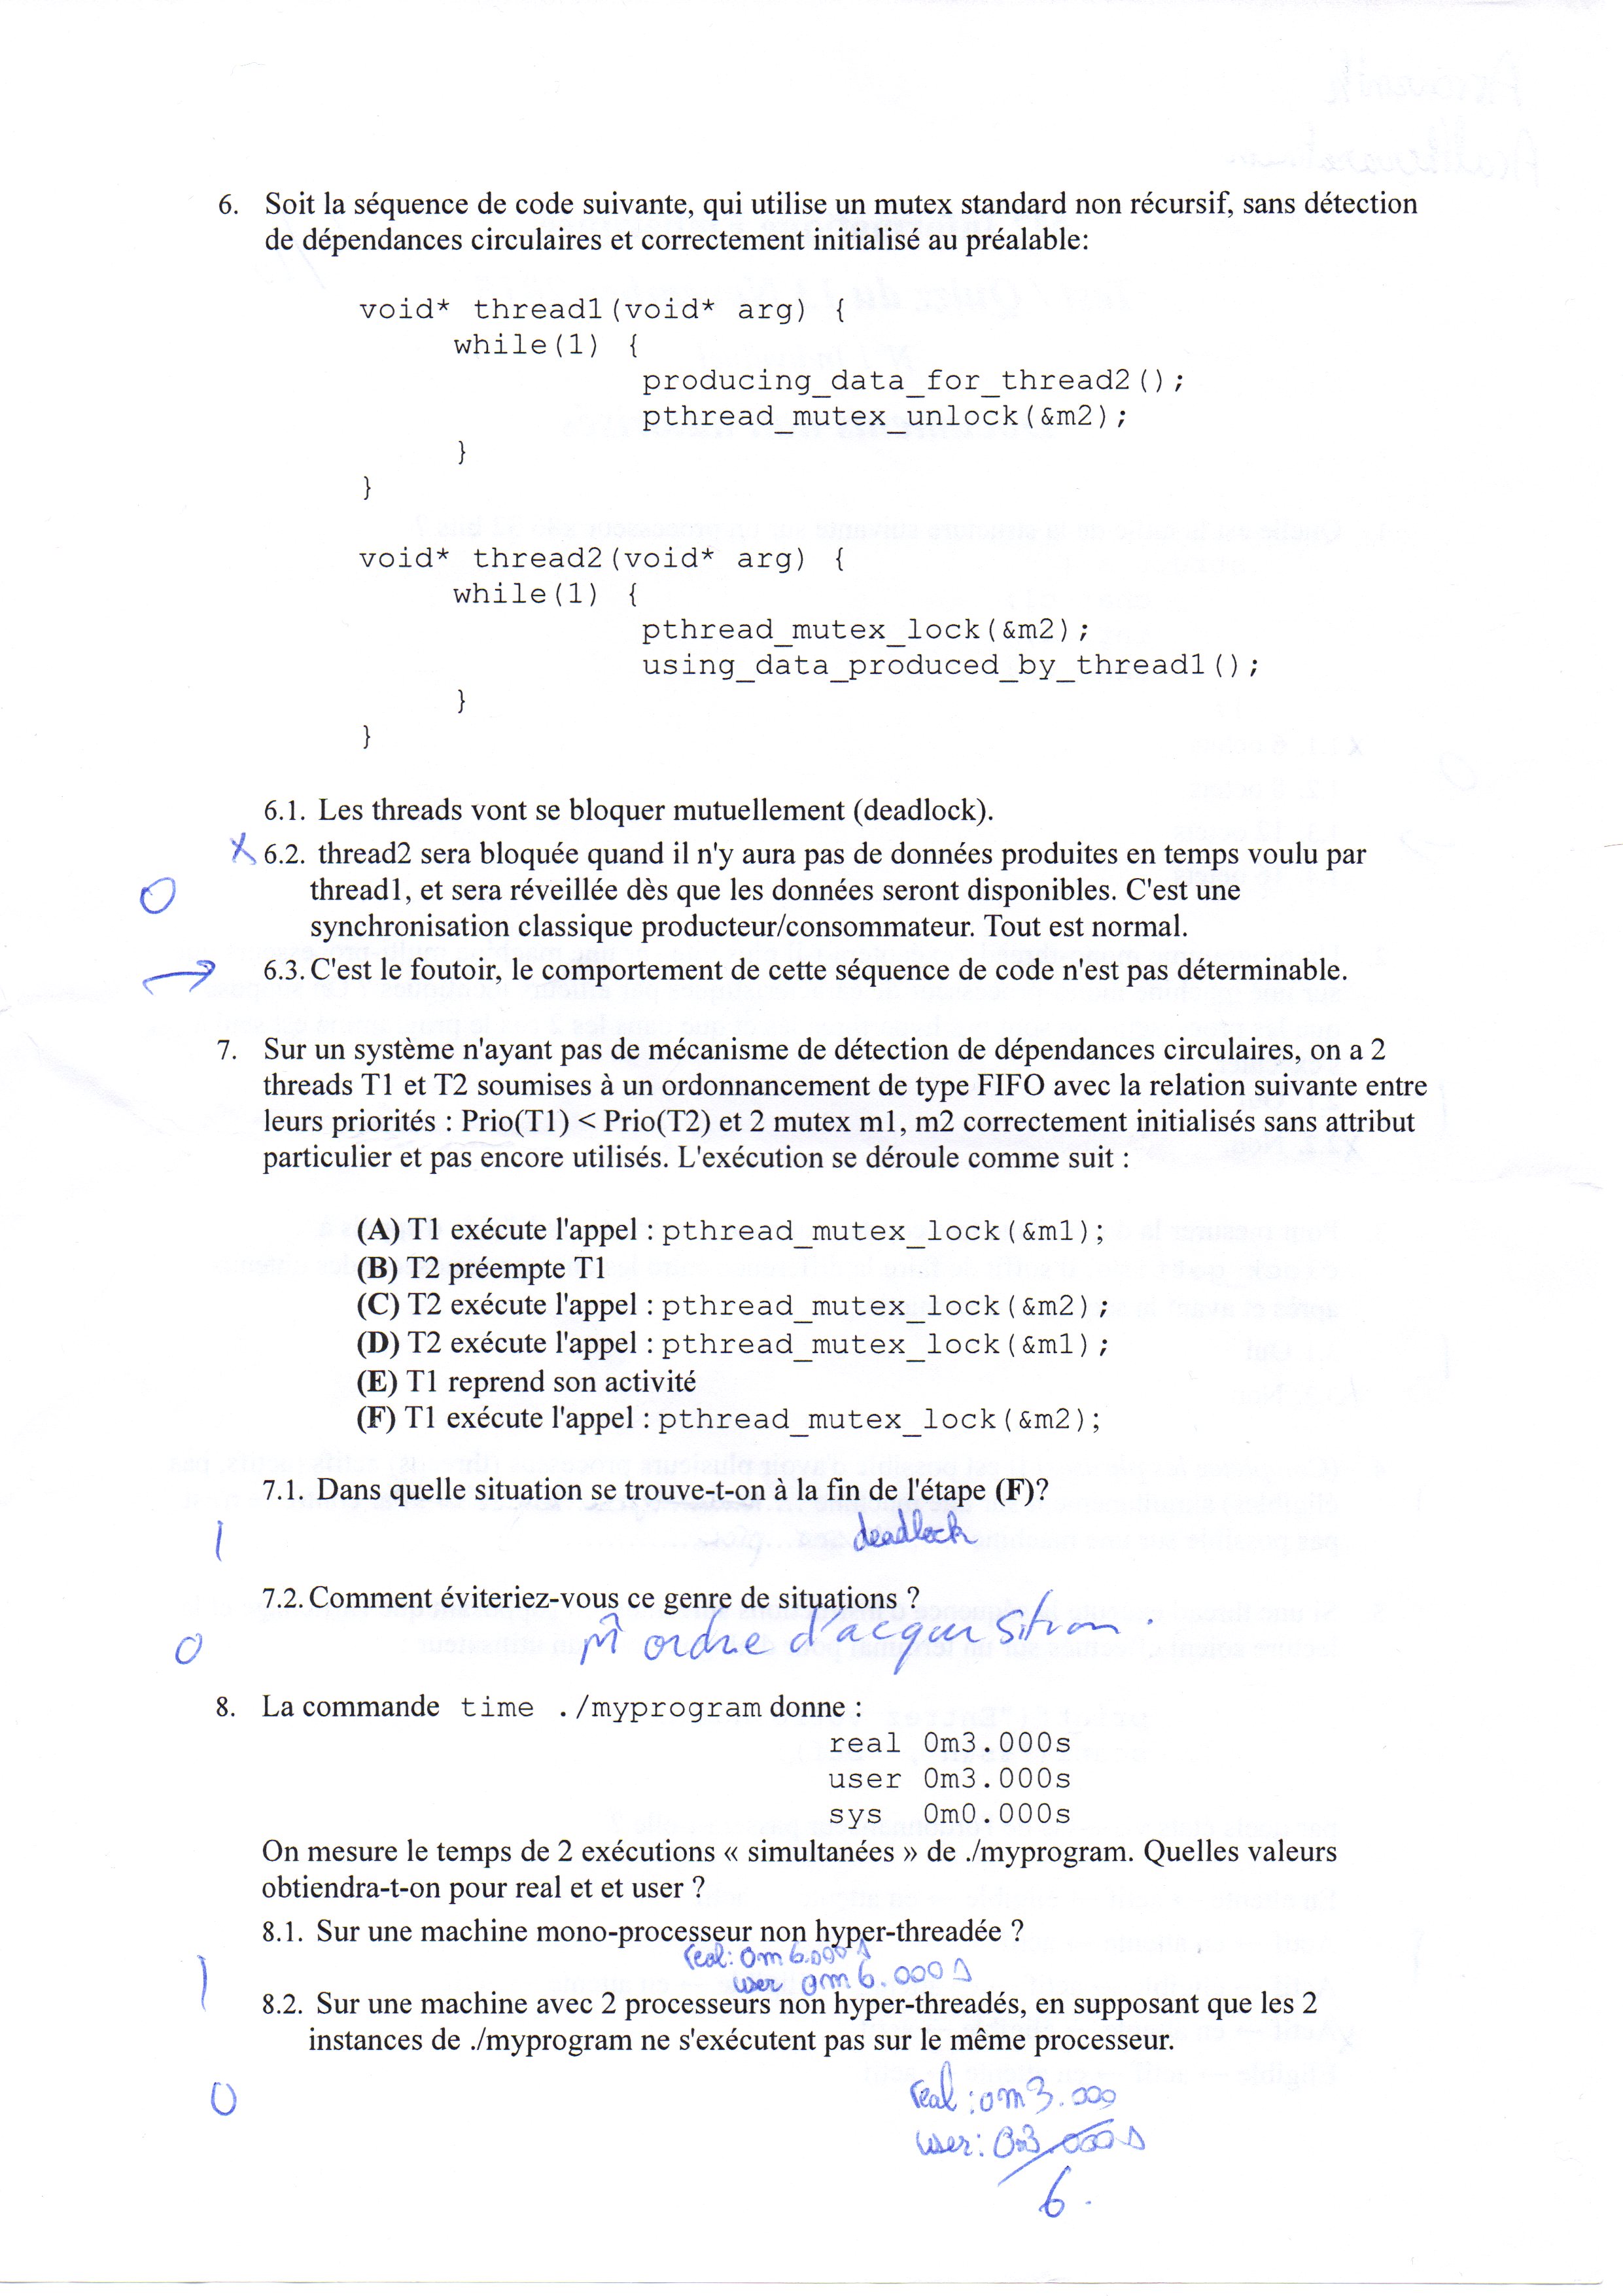 6. Soit la séquence de code suivante, qui utilise un mutex standard non récursif, sans détection
de dépendances circulaires et correctement initialisé au préalable:
void* thread1(void* arg) {
while(1) {
producing_data_for_thread2();
pthread_mutex_unlock(&m2);
}
}
void* thread2(void* arg) {
while(1) {
pthread_mutex_lock(&m2);
using_data_produced_by_thread1();
}
}
6.1. Les threads vont se bloquer mutuellement (deadlock).
X 6.2. thread2 sera bloquée quand il n'y aura pas de données produites en temps voulu par
0 thread1, et sera réveillée dès que les données seront disponibles. C'est une
synchronisation classique producteur/consommateur. Tout est normal.
→ 6.3. C'est le foutoir, le comportement de cette séquence de code n'est pas déterminable.
7. Sur un système n'ayant pas de mécanisme de détection de dépendances circulaires, on a 2
threads T1 et T2 soumises à un ordonnancement de type FIFO avec la relation suivante entre
leurs priorités : Prio(T1) < Prio(T2) et 2 mutex m1, m2 correctement initialisés sans attribut
particulier et pas encore utilisés. L'exécution se déroule comme suit :
(A) T1 exécute l'appel : pthread_mutex_lock(&m1);
(B) T2 préempte T1
(C) T2 exécute l'appel : pthread_mutex_lock(&m2);
(D) T2 exécute l'appel : pthread_mutex_lock(&m1);
(E) T1 reprend son activité
(F) T1 exécute l'appel : pthread_mutex_lock(&m2);
7.1. Dans quelle situation se trouve-t-on à la fin de l'étape (F)?
1 deadlock
7.2. Comment éviteriez-vous ce genre de situations ?
0 m̂ ordre d'acquisition.
8. La commande time ./myprogram donne :
real 0m3.000s
user 0m3.000s
sys 0m0.000s
On mesure le temps de 2 exécutions « simultanées » de ./myprogram. Quelles valeurs
obtiendra-t-on pour real et et user ?
8.1. Sur une machine mono-processeur non hyper-threadée ?
real: 0m6.000s
1 user 0m6.000s
8.2. Sur une machine avec 2 processeurs non hyper-threadés, en supposant que les 2
instances de ./myprogram ne s'exécutent pas sur le même processeur.
0 real: 0m3.000
user: 0m3.000s
6.